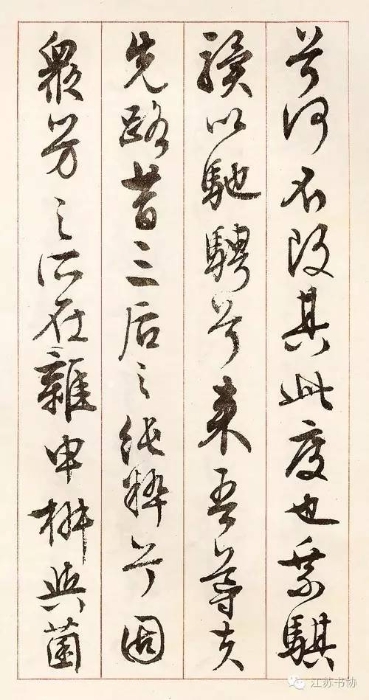 兮何不改其此度也乘騏
驥以馳騁兮來吾導夫
先路昔三后之純粹兮固
衆芳之所在雜申椒與菌
江苏书协